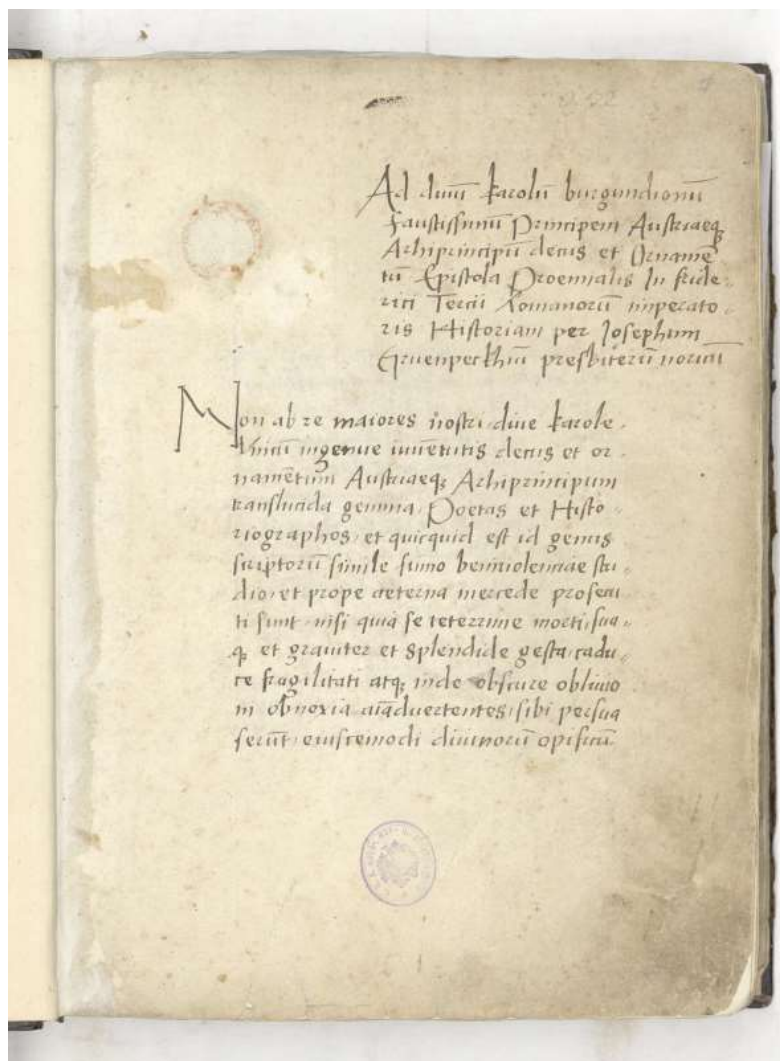 Ad diuū karolū burgundionū
faustissimū Principem Austriaeq;
Arhiprincipū decus et Ornamē
tū Epistola Proemialis In fride-
rici Tercii Romanorū imperato-
ris Historiam per Josephum
Gruenpeckhiū presbiterū noricū
Non ab re maiores nostri diue karole
Vnicū ingenue iuuētutis decus et or-
namētum Austriaeq; Arhiprincipum
translucida gemma, Poetas et Histo-
riographos, et quicquid est id genus
scriptorū simile sūmo beniuolenciae stu-
dio, et prope aeterna mercede prosecu
ti sunt, nisi quia se teterrime morti, sua-
q; et grauiter et splendide gesta, cadu-
ce fragilitati atq; inde obscure obliuio
ni obnoxia aīaduertentes, sibi persua
serūt, eiuscemodi diuinorū opificū